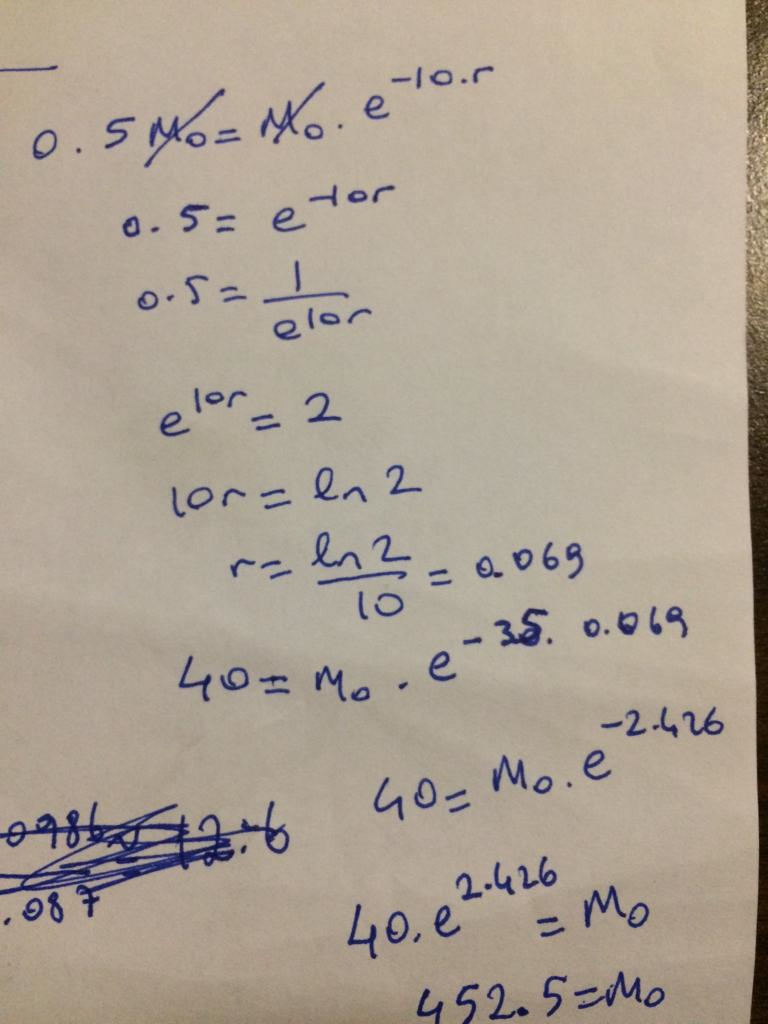 0.5M₀=M₀.e^-10.r
0.5=e^-10r
0.5=1/e^10r
e^10r=2
10r=ln2
r=ln2/10=0.069
40=M₀.e^-35.0.069
40=M₀.e^-2.426
40.e^2.426=M₀
452.5=M₀
.087